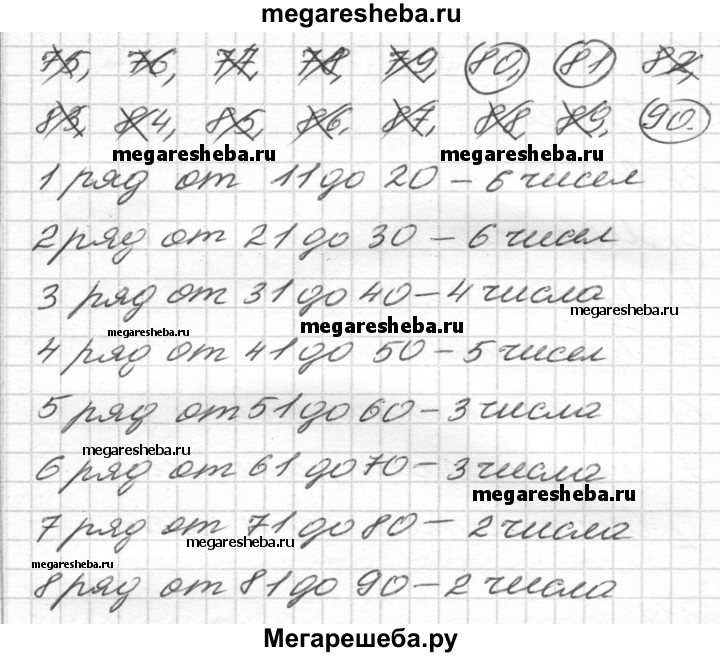 megaresheba.ru
75, 76, 77, 78, 79, 80, 81 82
83, 84, 85, 86, 87, 88, 89, 90.
megaresheba.ru megaresheba.ru
1 ряд от 11 до 20 – 6 чисел
2 ряд от 21 до 30 – 6 чисел
3 ряд от 31 до 40 – 4 числа
megaresheba.ru megaresheba.ru megaresheba.ru
4 ряд от 41 до 50 – 5 чисел
5 ряд от 51 до 60 – 3 числа
megaresheba.ru
6 ряд от 61 до 70 – 3 числа
megaresheba.ru
7 ряд от 71 до 80 – 2 числа
megaresheba.ru
megaresheba.ru
8 ряд от 81 до 90 – 2 числа
Мегарешеба.ру